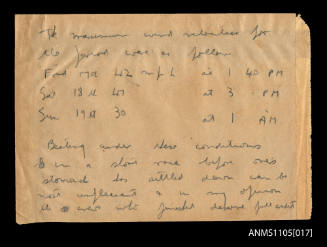 The maximum wind velocities for
the period was as follows
Frid 17th 42 mph at 1 40 PM
Sat 18th 41 at 3 PM
Sun 19th 30 at 1 AM
Beating under these conditions
in a slow race before one's
stomach has settled down can be
most unpleasant & in my opinion
the who finished deserve full credit
ANMS1105[017]